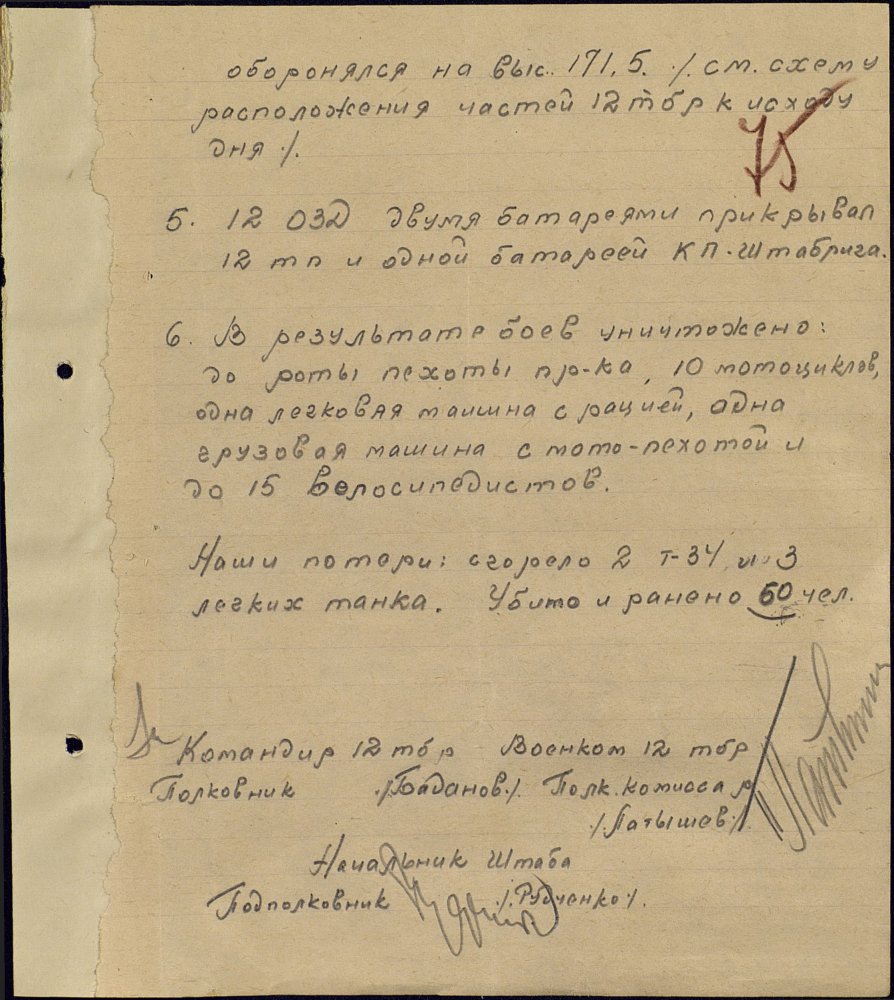 оборонялся на выс. 171,5. /. см. схему
расположения частей 12 тбр к исходу
дня ./.
75
5. 12 ОЗД двумя батареями прикрывал
12 тп и одной батареей КП-Штабрига.
6. В результате боев уничтожено:
до роты пехоты пр-ка, 10 мотоциклов,
одна легковая машина с рацией, одна
грузовая машина с мото-пехотой и
до 15 велосипедистов.
Наши потери: сгорело 2 Т-34 и 3
легких танка. Убито и ранено 60 чел.
Командир 12 тбр Военком 12 тбр
Полковник ./Баданов/. Полк. комиссар
/.Латышев./
Начальник Штаба
Подполковник ./.Рудченко/.